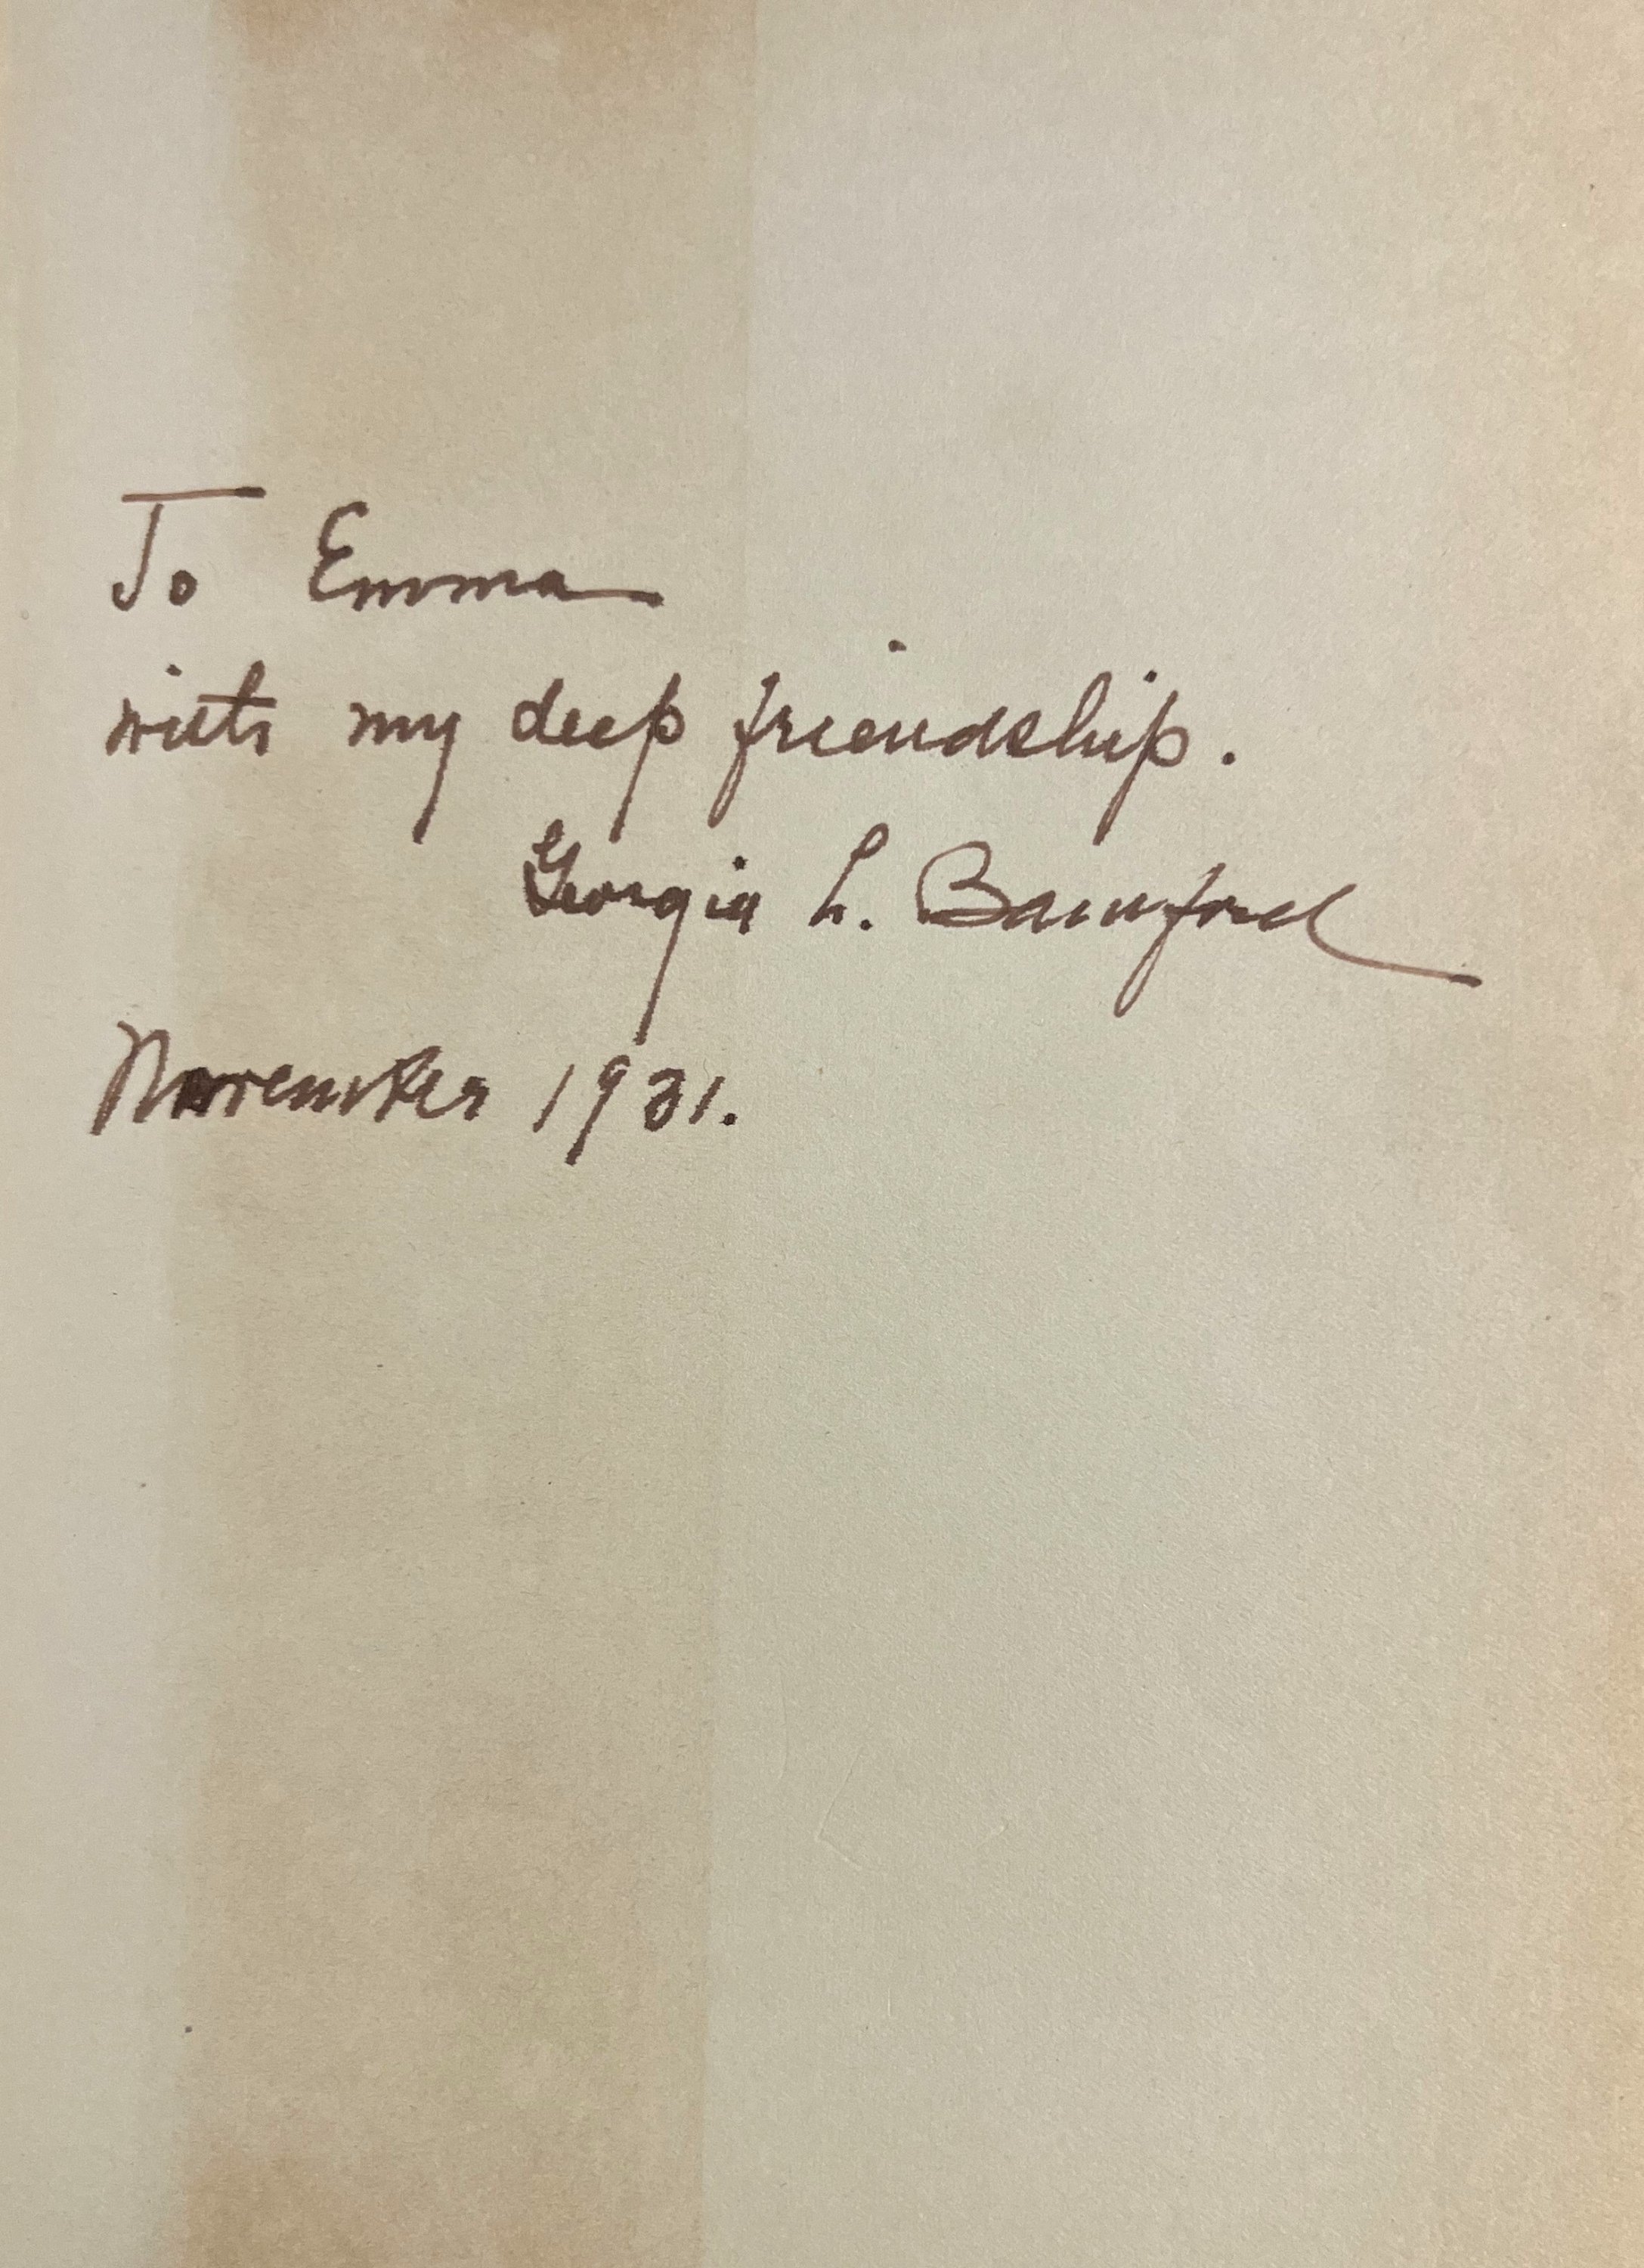 To Emma
with my deep friendship.
Georgia L. Bamford
November 1931.